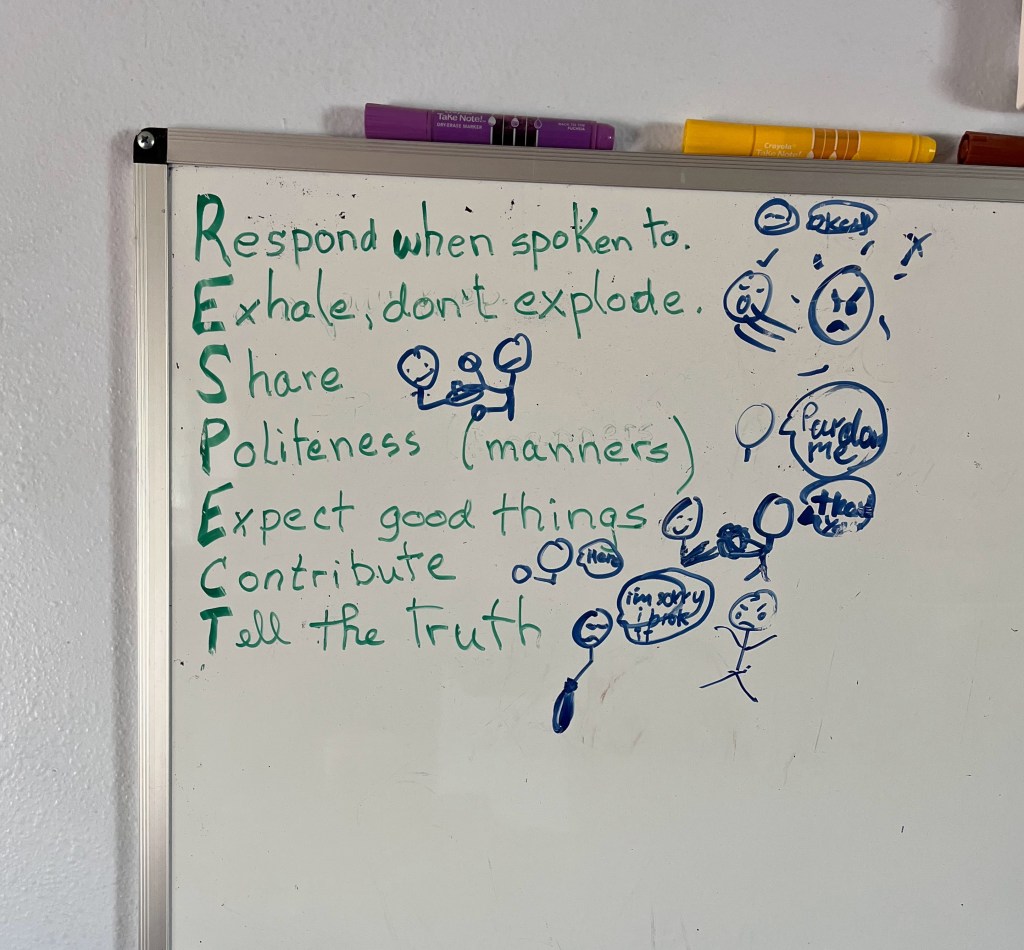 Take Note!
DRY-ERASE MARKER
Crayola
Take Note!
Respond when spoken to.
Exhale, don't explode.
Share
Politeness (manners)
Pardon
me
Expect good things
Contribute
Tell the Truth
i'm sorry
i broke
it